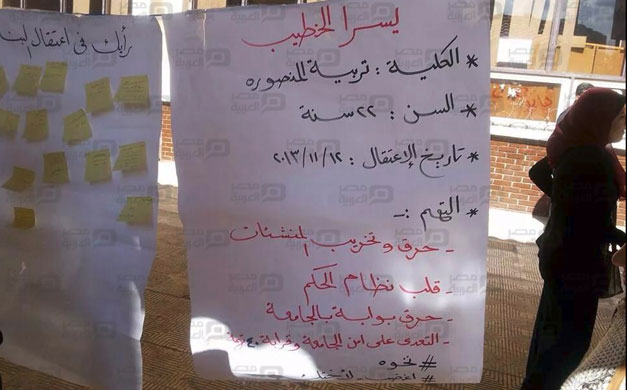 رأيك في اعتقال لبنا
يسرا الخطيب
* الكلية : تربية المنصوره
* السن : ٢٢ سنة
* تاريخ الإعتقال : ٢٠١٣/١١/١٢
* التهم :ـ
- حرق وتخريب المنشئات
- قلب نظام الحكم
- حرق بوابة بالجامعة
- التعدى على امن الجامعة
مصر العربية